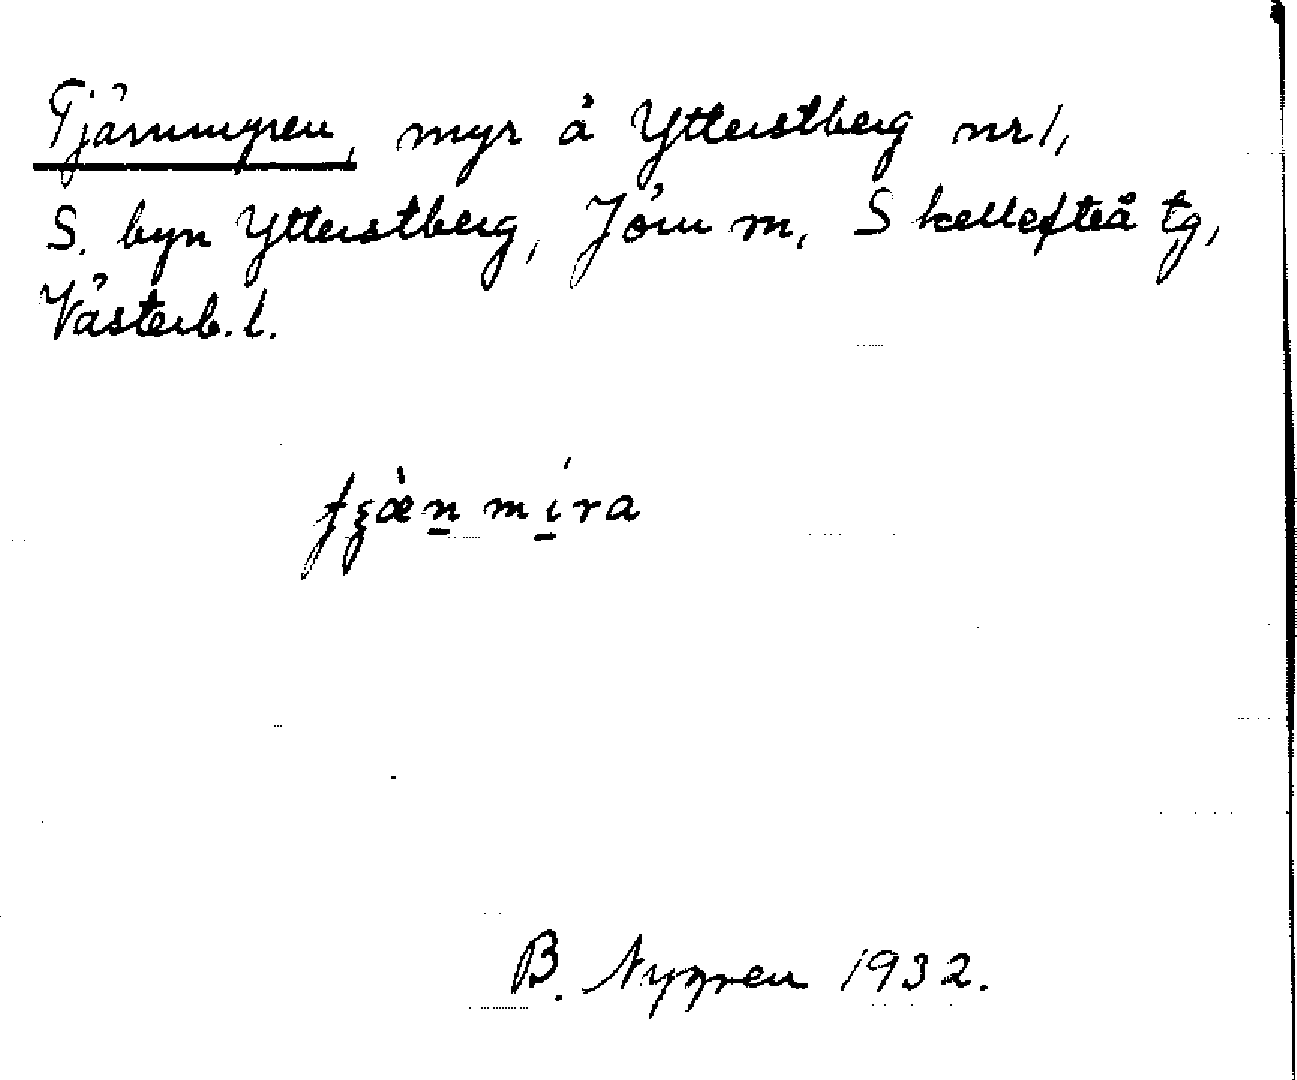 Tjärnmyren, myr å Ytterstberg nr 1,
S. byn Ytterstberg, Jörn sn, Skellefteå tg,
Västerb. l.
B. Nygren 1932.